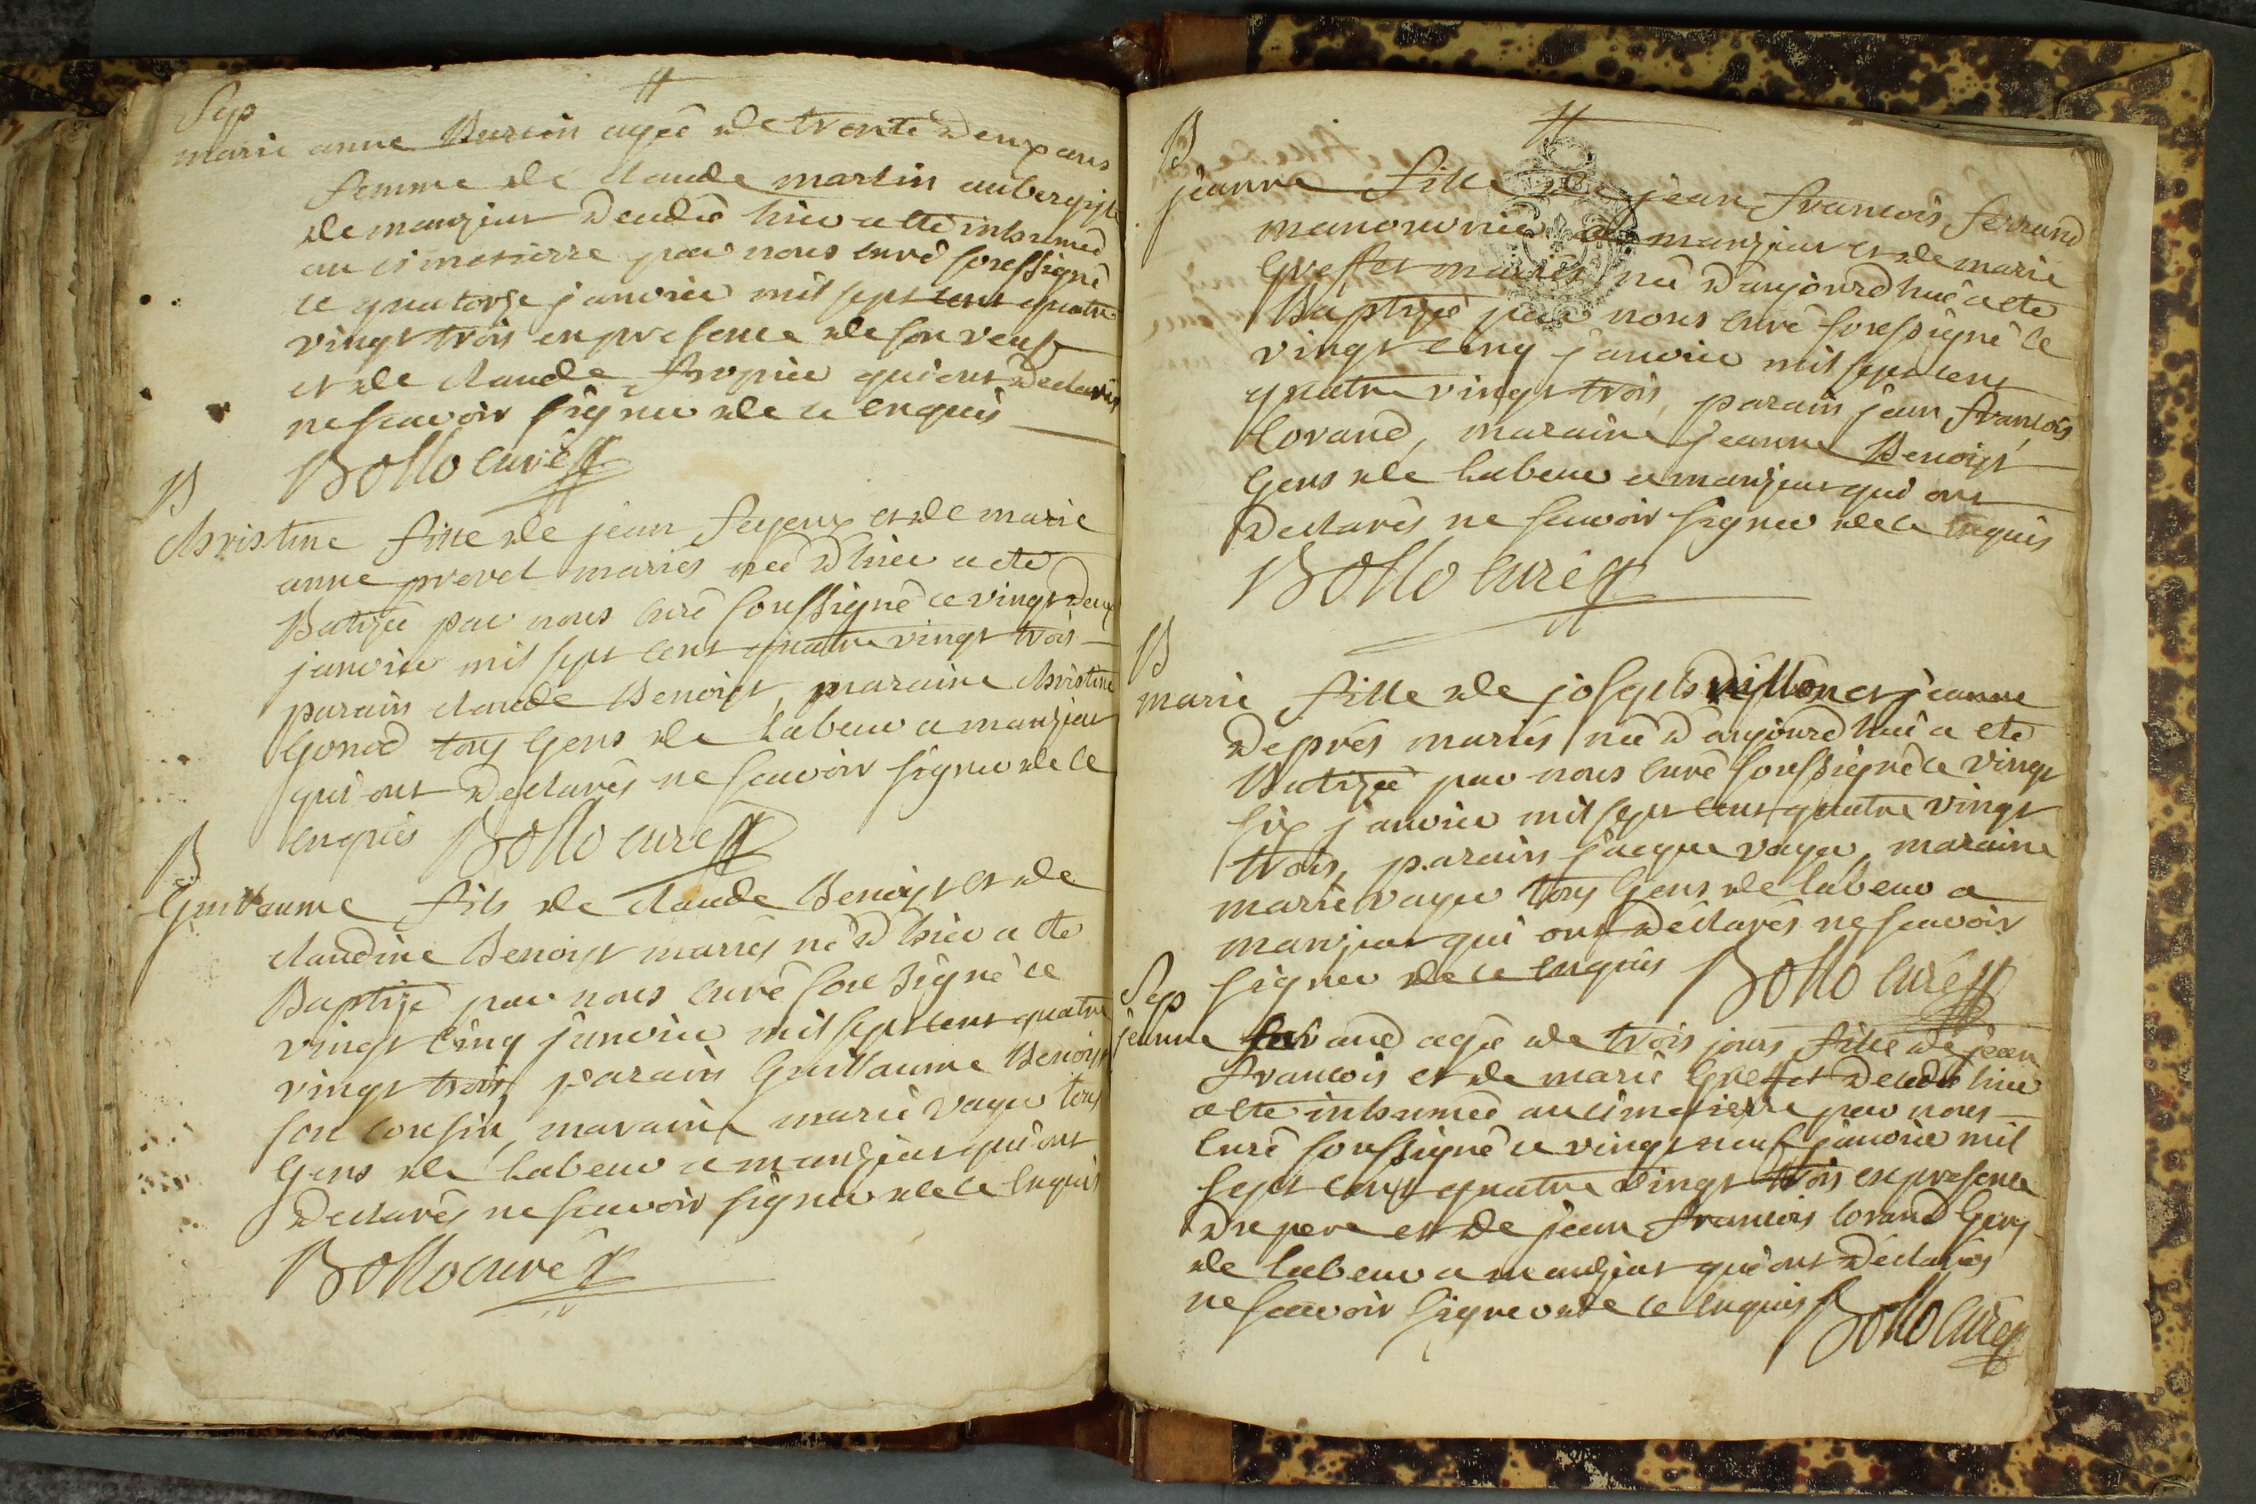 Sep
marie anne Burtin agée de trente deux ans
femme de claude martin aubergiste
de manziat decedée hier a été inhumée
au cimetierre par nous curé soussigné
le quatorze janvier mil sept cent quatre
vingt trois en presence de son veuf
et de claude qui ont declarés
ne scavoir signer de ce enquis
Bollo curé
B
christine fille de jean feyeux et de marie
anne prevel mariés née d'hier a été
Batizée par nous curé soussigné ce vingt deux
janvier mil sept cent quatre vingt trois
parain claude Benoist, maraine christine
Gonod tous gens de labeur a manziat
qui ont declarés ne scavoir signer de ce
enquis Bollo curé
B
Guillaume fils de claude Benoist et de
claudine Benoist mariés né d'hier a été
Baptizé par nous curé soussigné ce
vingt cinq janvier mil sept cent quatre
vingt trois, parain Guillaume Benoist
son cousin, maraine marie vayer tous
gens de labeur a manziat qui ont
declarés ne scavoir signer de ce enquis
Bollo curé
B
jeanne fille de jean francois ferrand
manouvrier a manziat et de marie
Greffet mariés née d'aujourd'hui a été
Baptizée par nous curé soussigné le
vingt cinq janvier mil sept cent
quatre vingt trois, parain jean francois
Corand, maraine jeanne Benoist
gens de labeur a manziat qui ont
declarés ne scavoir signer de ce enquis
Bollo curé
B
marie fille de joseph et jeanne
deprés mariés née d'aujourd'hui a été
Batizée par nous curé soussigné ce vingt
six janvier mil sept cent quatre vingt
trois, parain jacque vayer, maraine
marie vayer tous gens de labeur a
manziat qui ont declarés ne scavoir
signer de ce enquis Bollo curé
Sep
jeanne ferrand agée de trois jours fille de jean
francois et de marie Greffet decedée hier
a été inhumée au cimetierre par nous
curé soussigné ce vingt neuf janvier mil
sept cent quatre vingt trois en presence
du pere et de jean francois Corand gens
de labeur a manziat qui ont declarés
ne scavoir signer de ce enquis Bollo curé